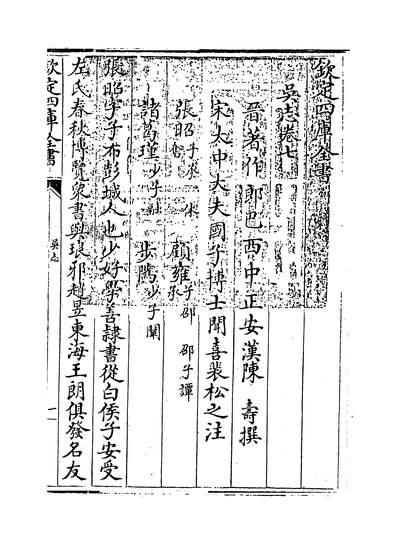 欽定四庫全書
吳志卷七
晉著作郎巴西中正安漢陳 壽撰
宋太中大夫國子博士聞喜裴松之注
張昭子承 休 顧雍子邵 邵子譚 承
諸葛瑾少子融 步騭少子闡
張昭字子布彭城人也少好學善隷書從白侯子安受
左氏春秋博覽衆書與琅邪趙昱東海王朗俱發名友
欽定四庫全書 吳志 一